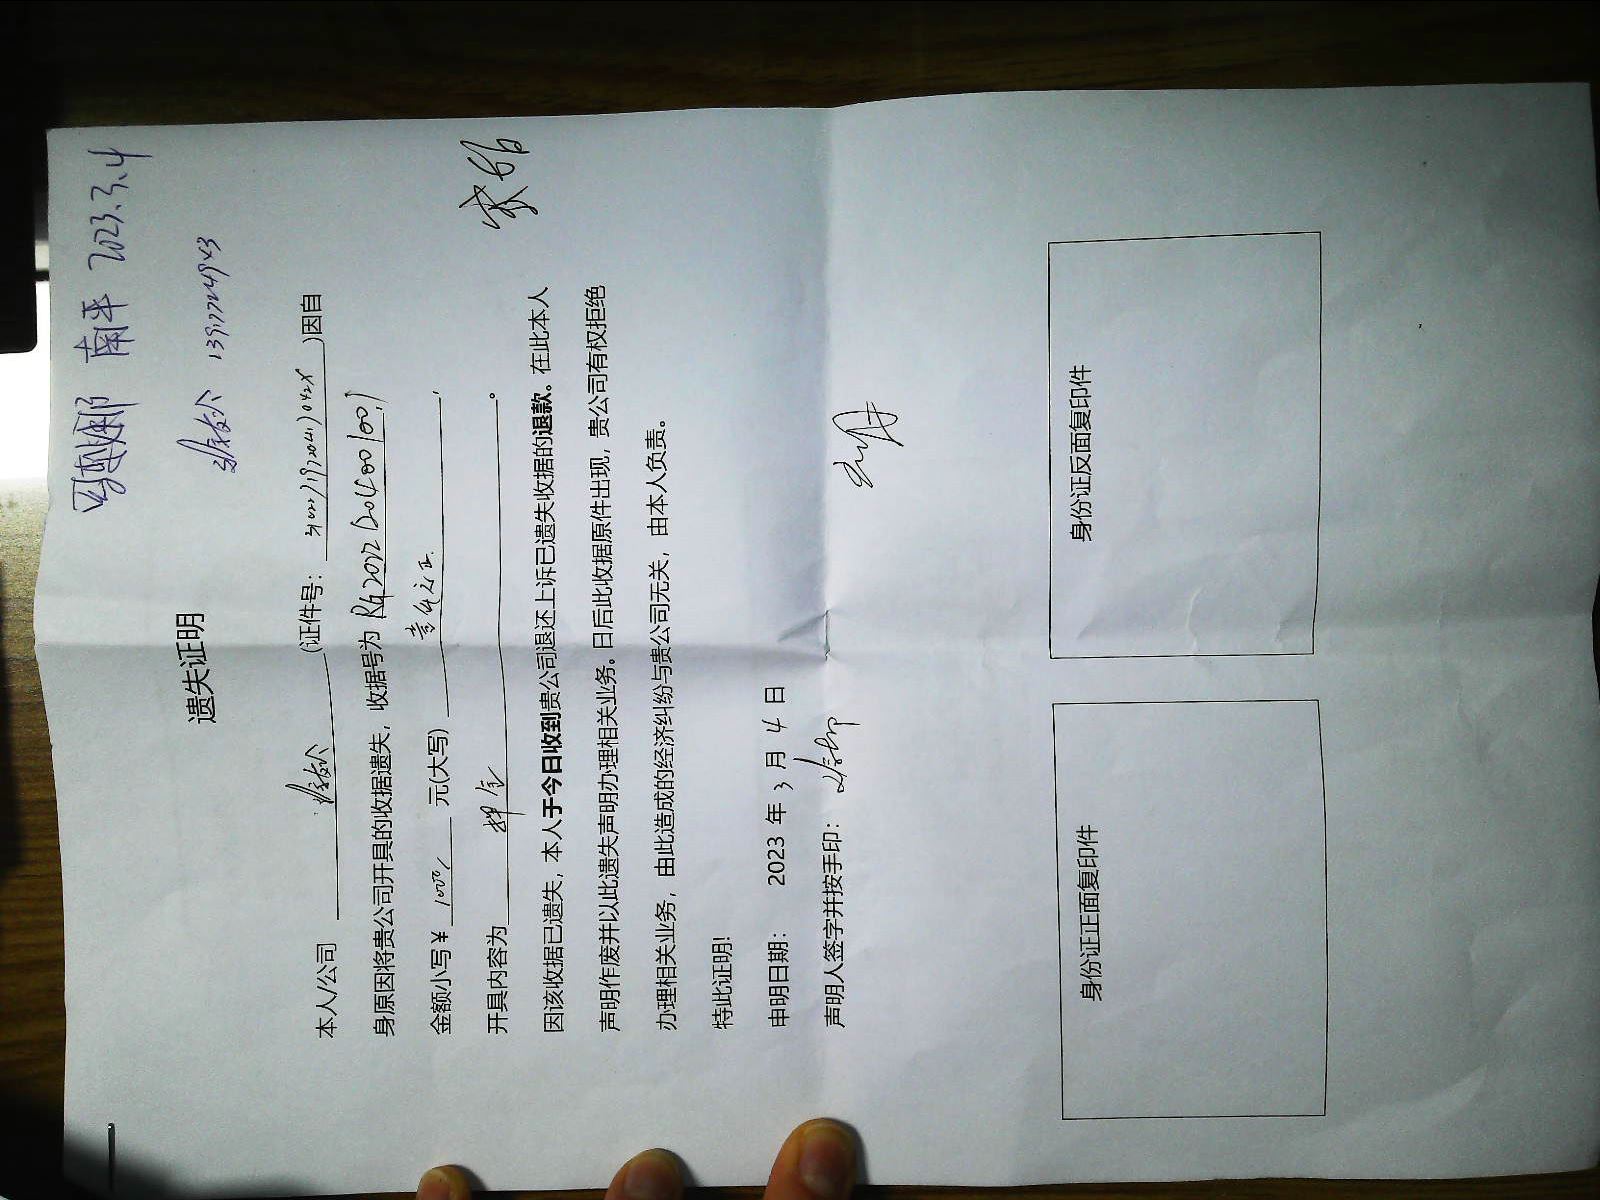 南平 2023.3.4
遗失证明
本人/公司 (证件号: )因自
身原因将贵公司开具的收据遗失，收据号为
金额小写￥ 1000 元(大写) 壹仟元正，
开具内容为 押金 。
因该收据已遗失，本人于今日收到贵公司退还上诉已遗失收据的退款。在此本人
声明作废并以此遗失声明办理相关业务。日后此收据原件出现，贵公司有权拒绝
办理相关业务，由此造成的经济纠纷与贵公司无关，由本人负责。
特此证明!
申明日期： 2023 年 3 月 4 日
声明人签字并按手印：
身份证正面复印件
身份证反面复印件